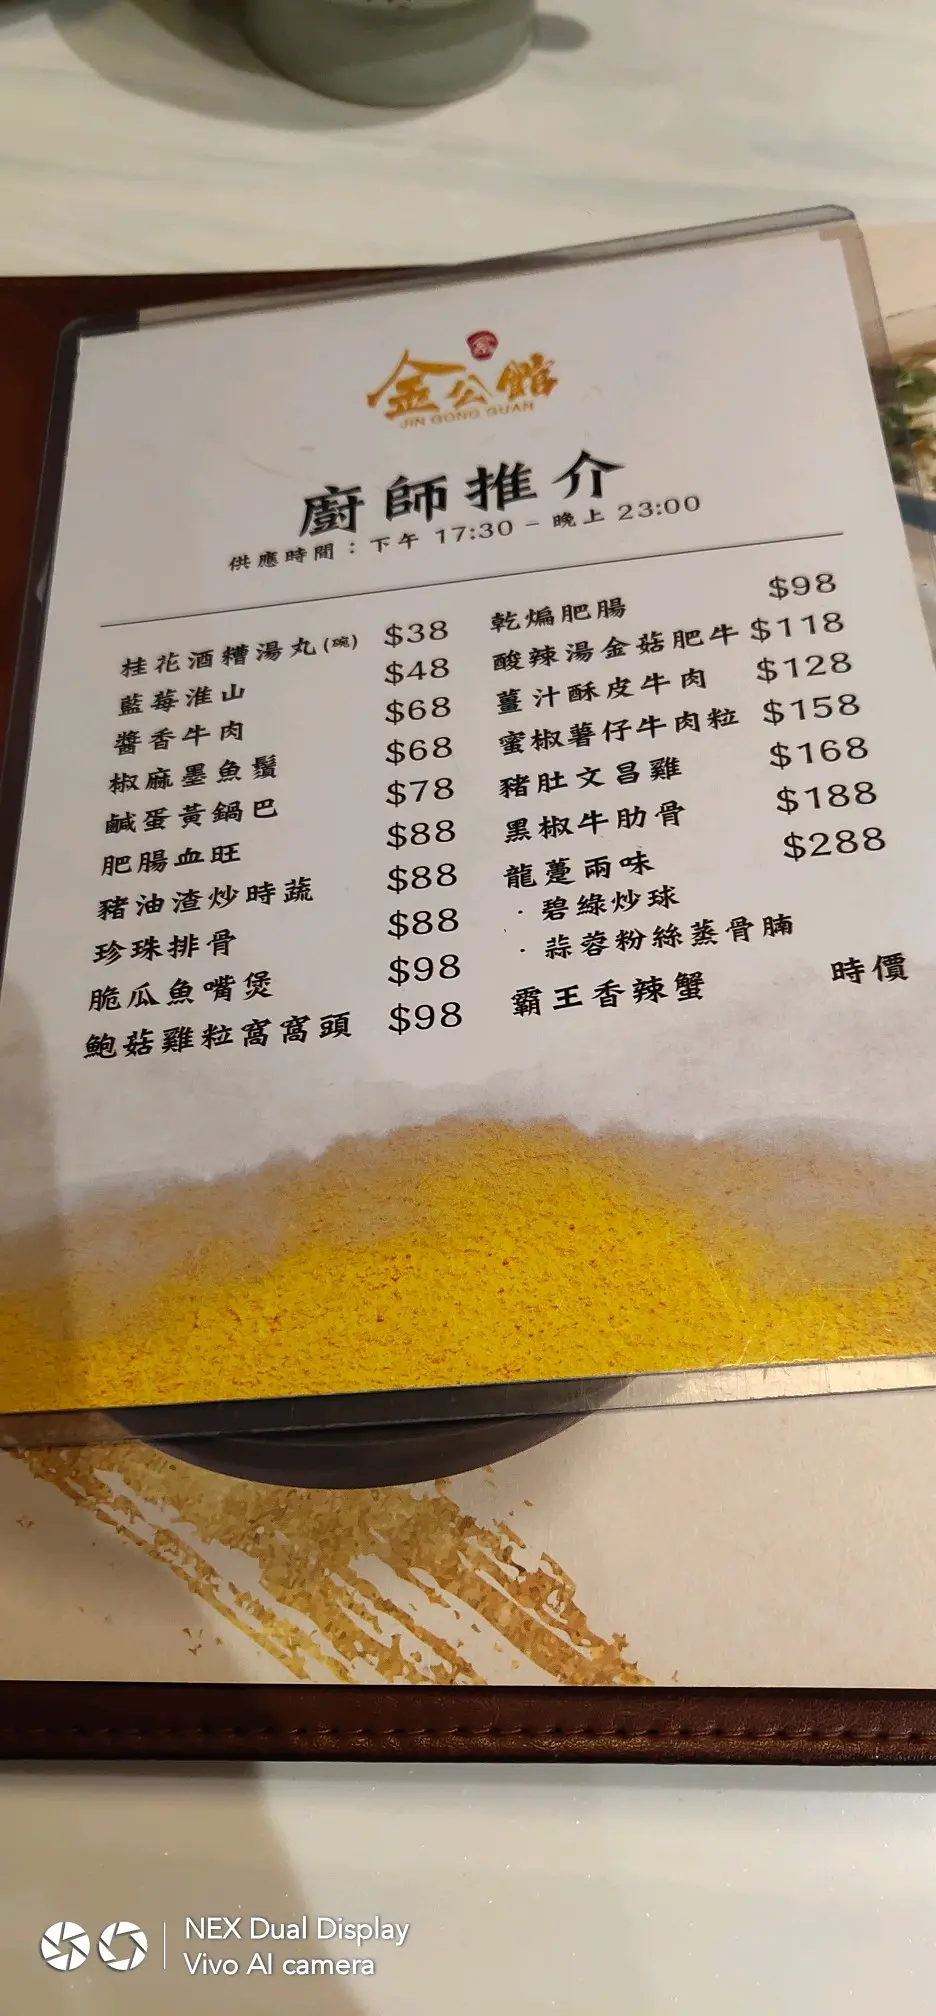 金公館
JIN GONG GUAN
廚師推介
供應時間：下午 17:30 – 晚上 23:00
桂花酒糟湯丸(碗) $38
藍莓淮山 $48
醬香牛肉 $68
椒麻墨魚鬚 $68
鹹蛋黃鍋巴 $78
肥腸血旺 $88
豬油渣炒時蔬 $88
珍珠排骨 $88
脆瓜魚嘴煲 $98
鮑菇雞粒窩窩頭 $98
乾煸肥腸 $98
酸辣湯金菇肥牛 $118
薑汁酥皮牛肉 $128
蜜椒薯仔牛肉粒 $158
豬肚文昌雞 $168
黑椒牛肋骨 $188
龍躉兩味 $288
· 碧綠炒球
· 蒜蓉粉絲蒸骨腩
霸王香辣蟹 時價
NEX Dual Display
Vivo AI camera